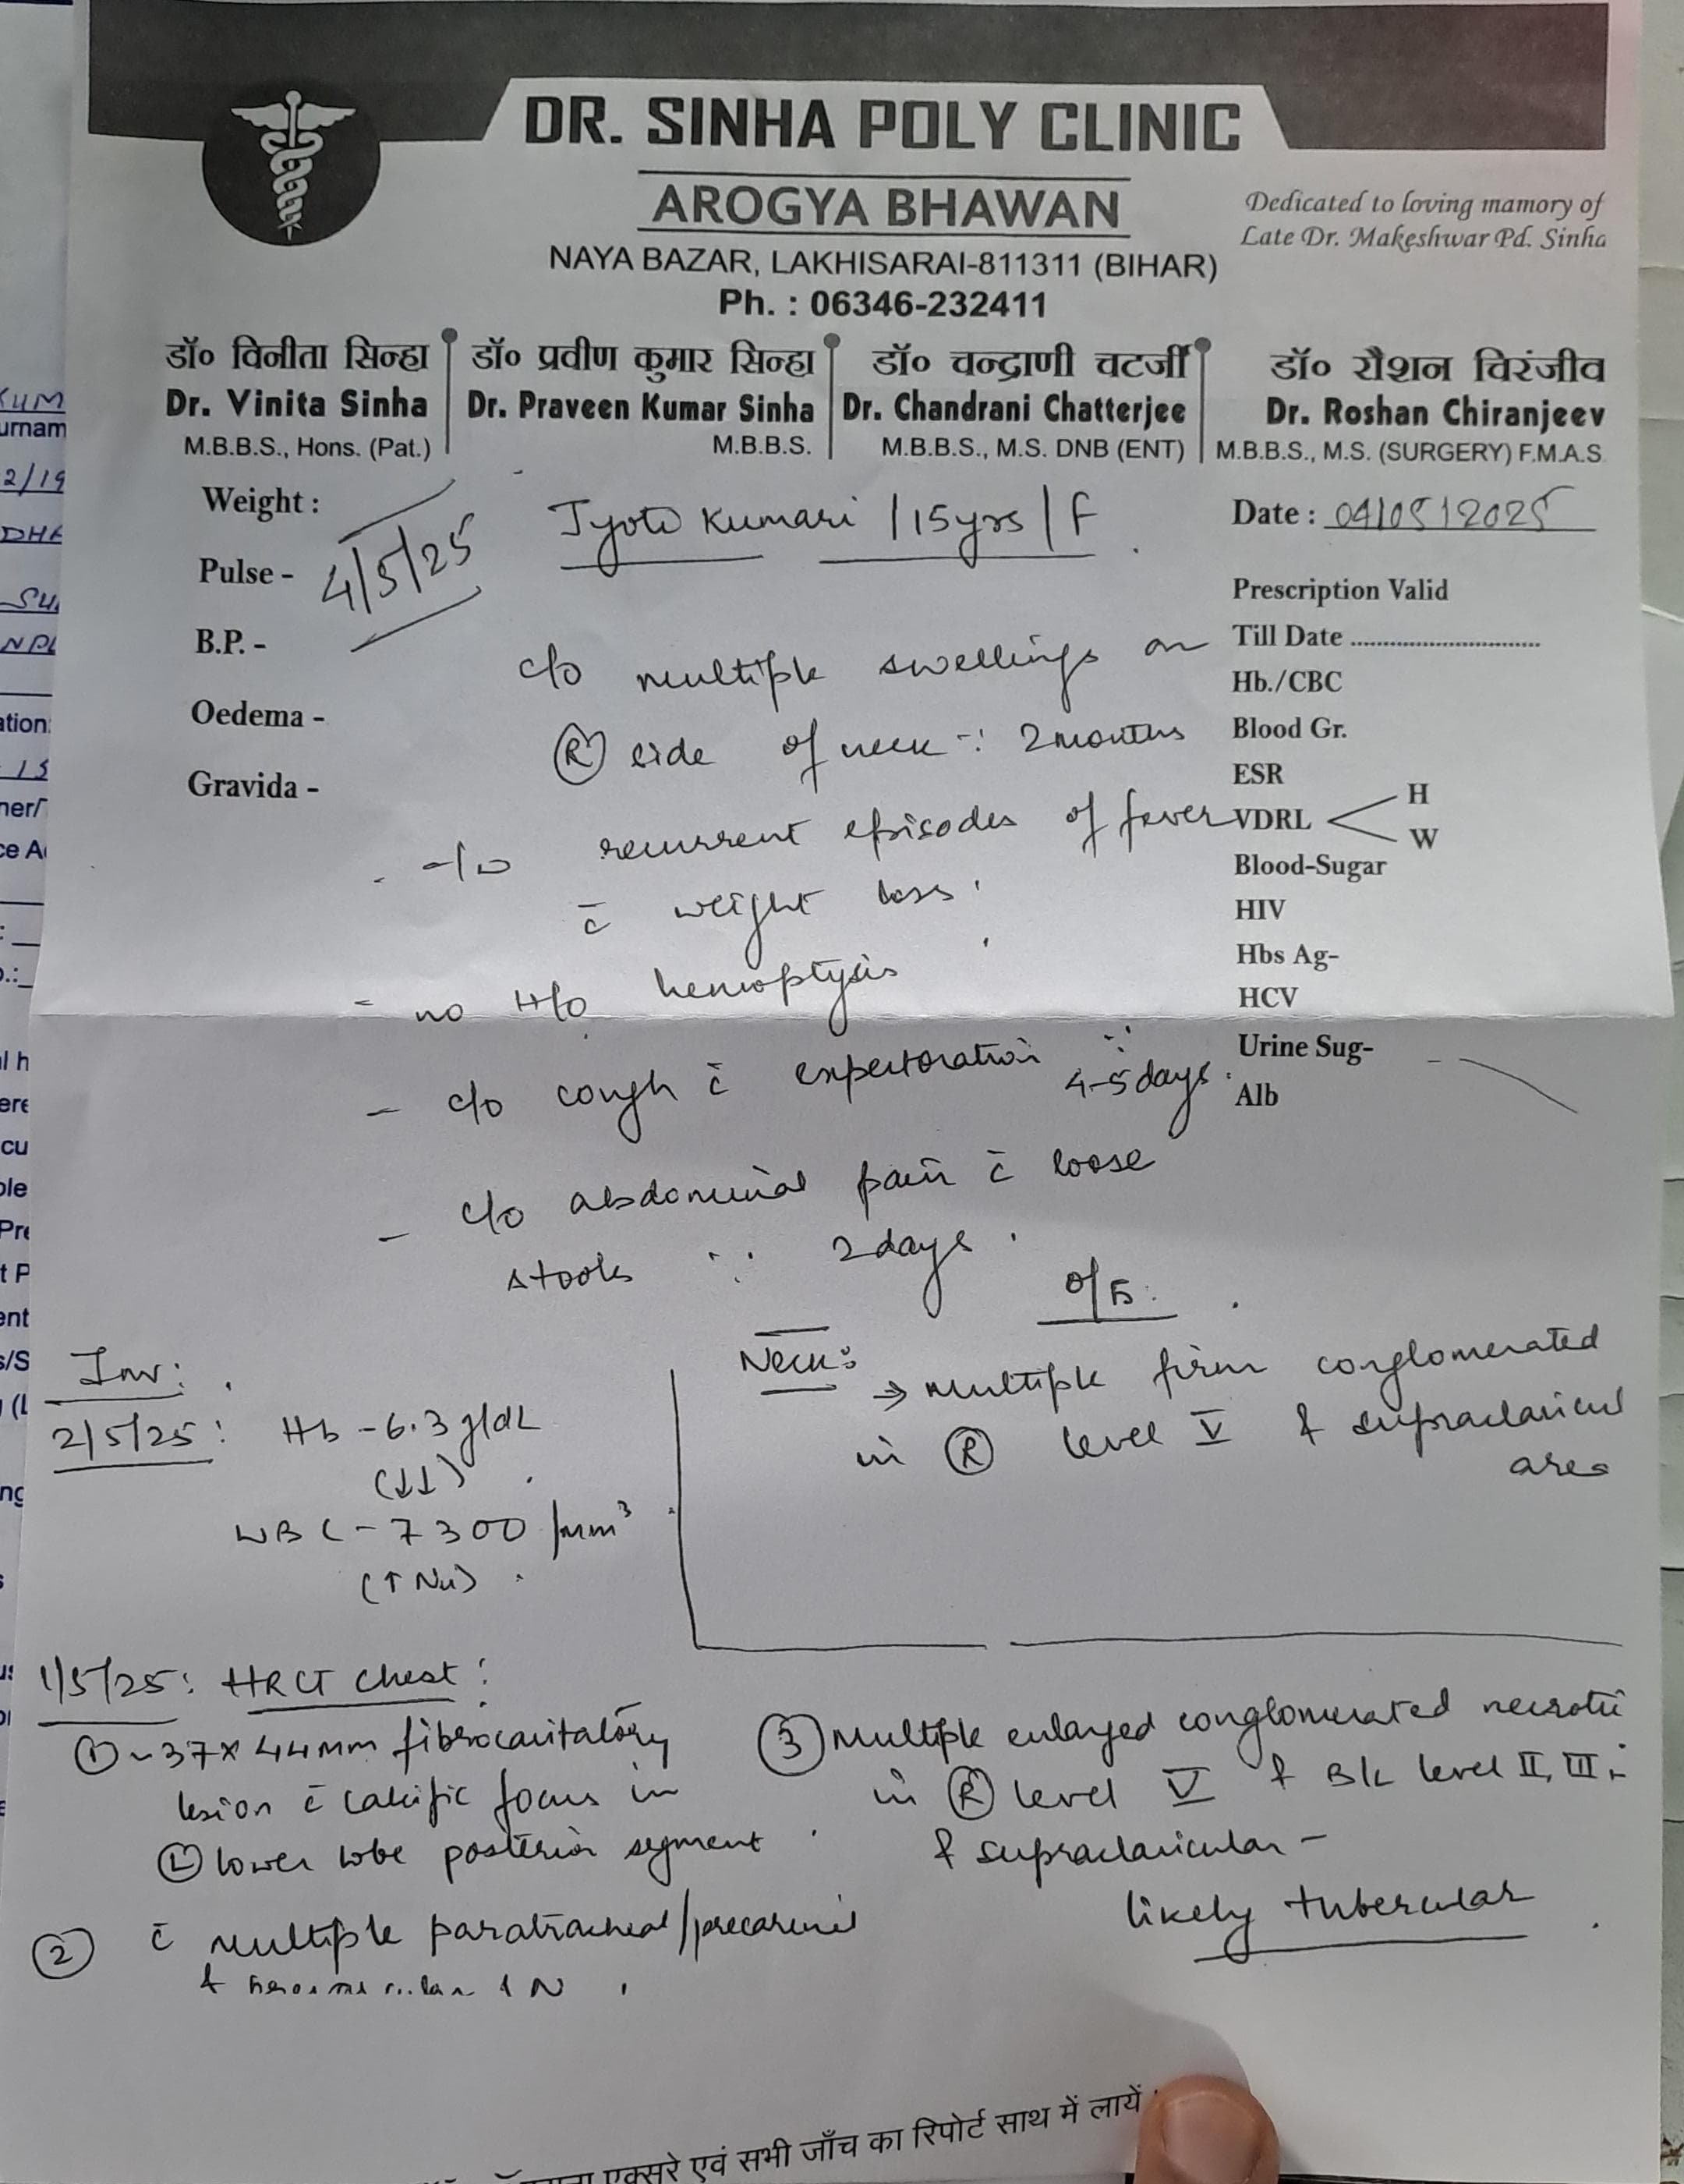 DR. SINHA POLY CLINIC
AROGYA BHAWAN
Dedicated to loving mamory of
Late Dr. Makeshwar Pd. Sinha
NAYA BAZAR, LAKHISARAI-811311 (BIHAR)
Ph. : 06346-232411
डॉ० विनीता सिन्हा
Dr. Vinita Sinha
M.B.B.S., Hons. (Pat.)
डॉ० प्रवीण कुमार सिन्हा
Dr. Praveen Kumar Sinha
M.B.B.S.
डॉ० चन्द्राणी चटर्जी
Dr. Chandrani Chatterjee
M.B.B.S., M.S. DNB (ENT)
डॉ० रौशन चिरंजीव
Dr. Roshan Chiranjeev
M.B.B.S., M.S. (SURGERY) F.M.A.S.
Weight :
Pulse -
B.P. -
Oedema -
Gravida -
4/5/25
Jyoti Kumari / 15yrs / F
Date : 04/05/2025
Prescription Valid
Till Date
Hb./CBC
Blood Gr.
ESR
VDRL H
W
Blood-Sugar
HIV
Hbs Ag-
HCV
Urine Sug-
Alb
c/o multiple swellings on
(R) side of neck ∵ 2 months
recurrent episodes of fever
c̄ weight loss
- no H/o hemoptysis
- c/o cough c̄ expectoration ∵
4-5 days.
- c/o abdominal pain c̄ loose
stools ∵ 2 days.
o/E:
Neck:
→ multiple firm conglomerated
in (R) level V & supraclavicul
area
Inv:
2/5/25: Hb - 6.3 g/dL
(↓↓)
WBC - 7300 /mm³
(↑ Nu)
1/5/25: HRCT Chest:
① ~37 x 44mm fibrocavitatory
lesion c̄ calcific focus in
(L) lower lobe posterior segment
② c̄ multiple paratracheal/precarinal
LN
③ Multiple enlarged conglomerated necrotic
in (R) level V & B/L level II, III
& supraclavicular -
likely tubercular
एक्सरे एवं सभी जाँच का रिपोर्ट साथ में लायें